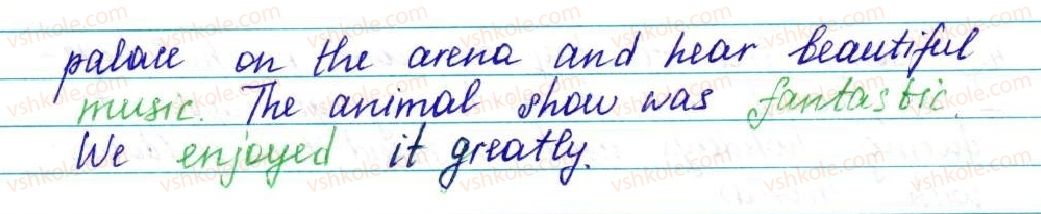 palace on the arena and hear beautiful
music. The animal show was fantastic.
We enjoyed it greatly.